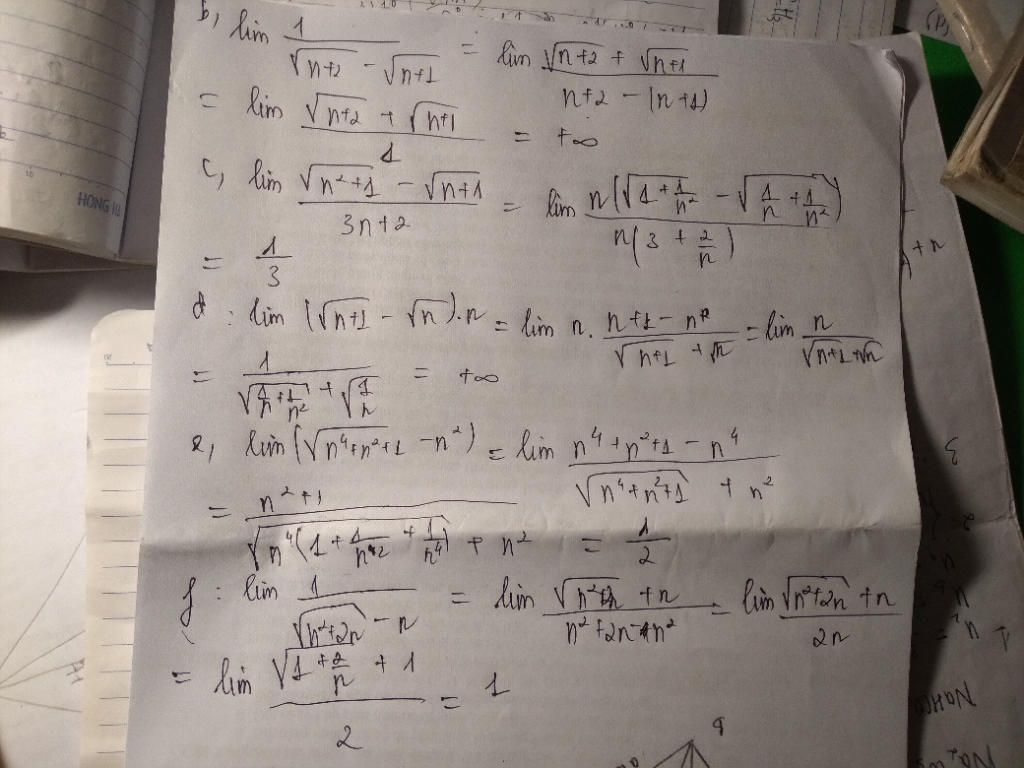 b, lim 1/(√(n+2) - √(n+1)) = lim (√(n+2) + √(n+1))/(n+2 - (n+1))
= lim (√(n+2) + √(n+1))/1 = +∞
c, lim (√(n²+1) - √(n+1))/(3n+2) = lim n(√(1 + 1/n²) - √(1/n + 1/n²))/n(3 + 2/n)
HONG H
= 1/3
d : lim (√(n+1) - √n).n = lim n. (n+1 - n)/(√(n+1) + √n) = lim n/(√(n+1) + √n)
= 1/(√(1/n + 1/n²) + √(1/n)) = +∞
e, lim (√(n⁴+n²+1) - n²) = lim (n⁴+n²+1 - n⁴)/(√(n⁴+n²+1) + n²)
= (n²+1)/(√(n⁴(1 + 1/n² + 1/n⁴)) + n²) = 1/2
f : lim 1/(√(n²+2n) - n) = lim (√(n²+2n) + n)/(n²+2n-n²) = lim (√(n²+2n) + n)/2n
= lim (√(1 + 2/n) + 1)/2 = 1